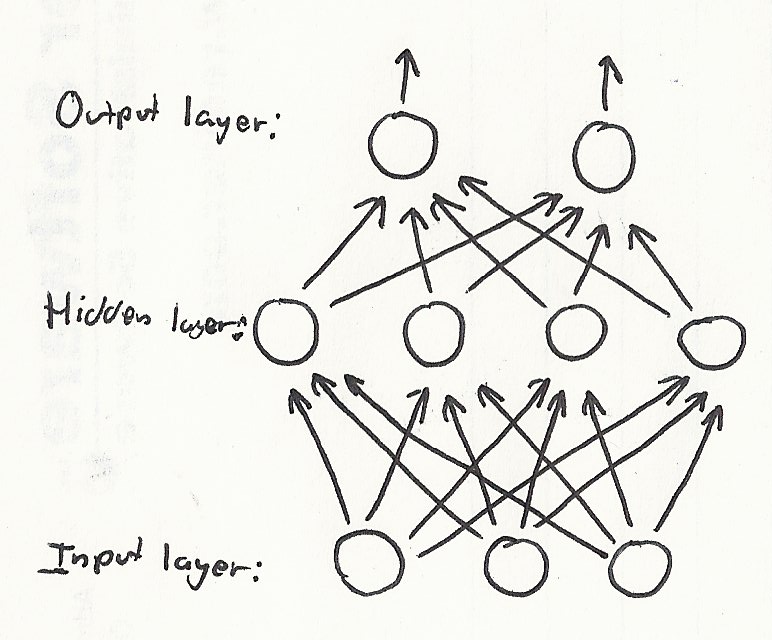 Output layer:
Hidden layer:
Input layer: